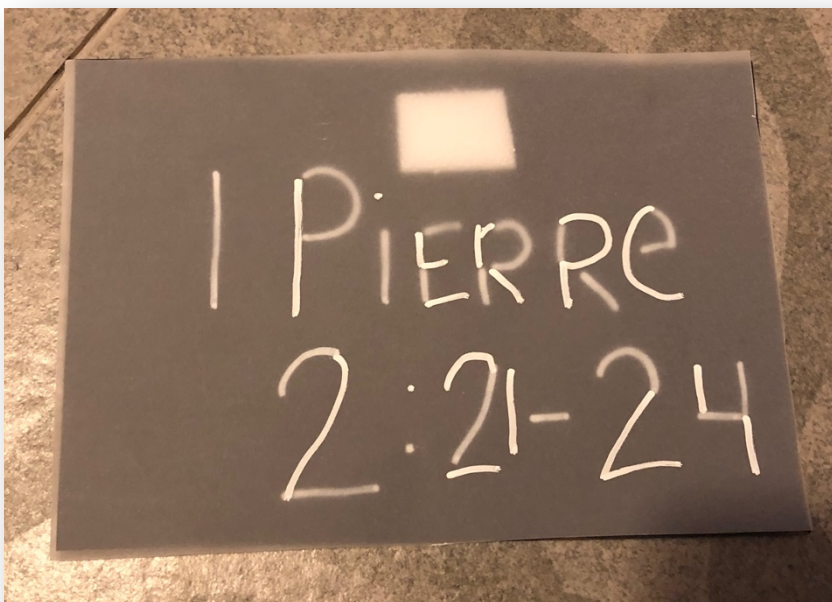 1 PiERRe
2:21-24